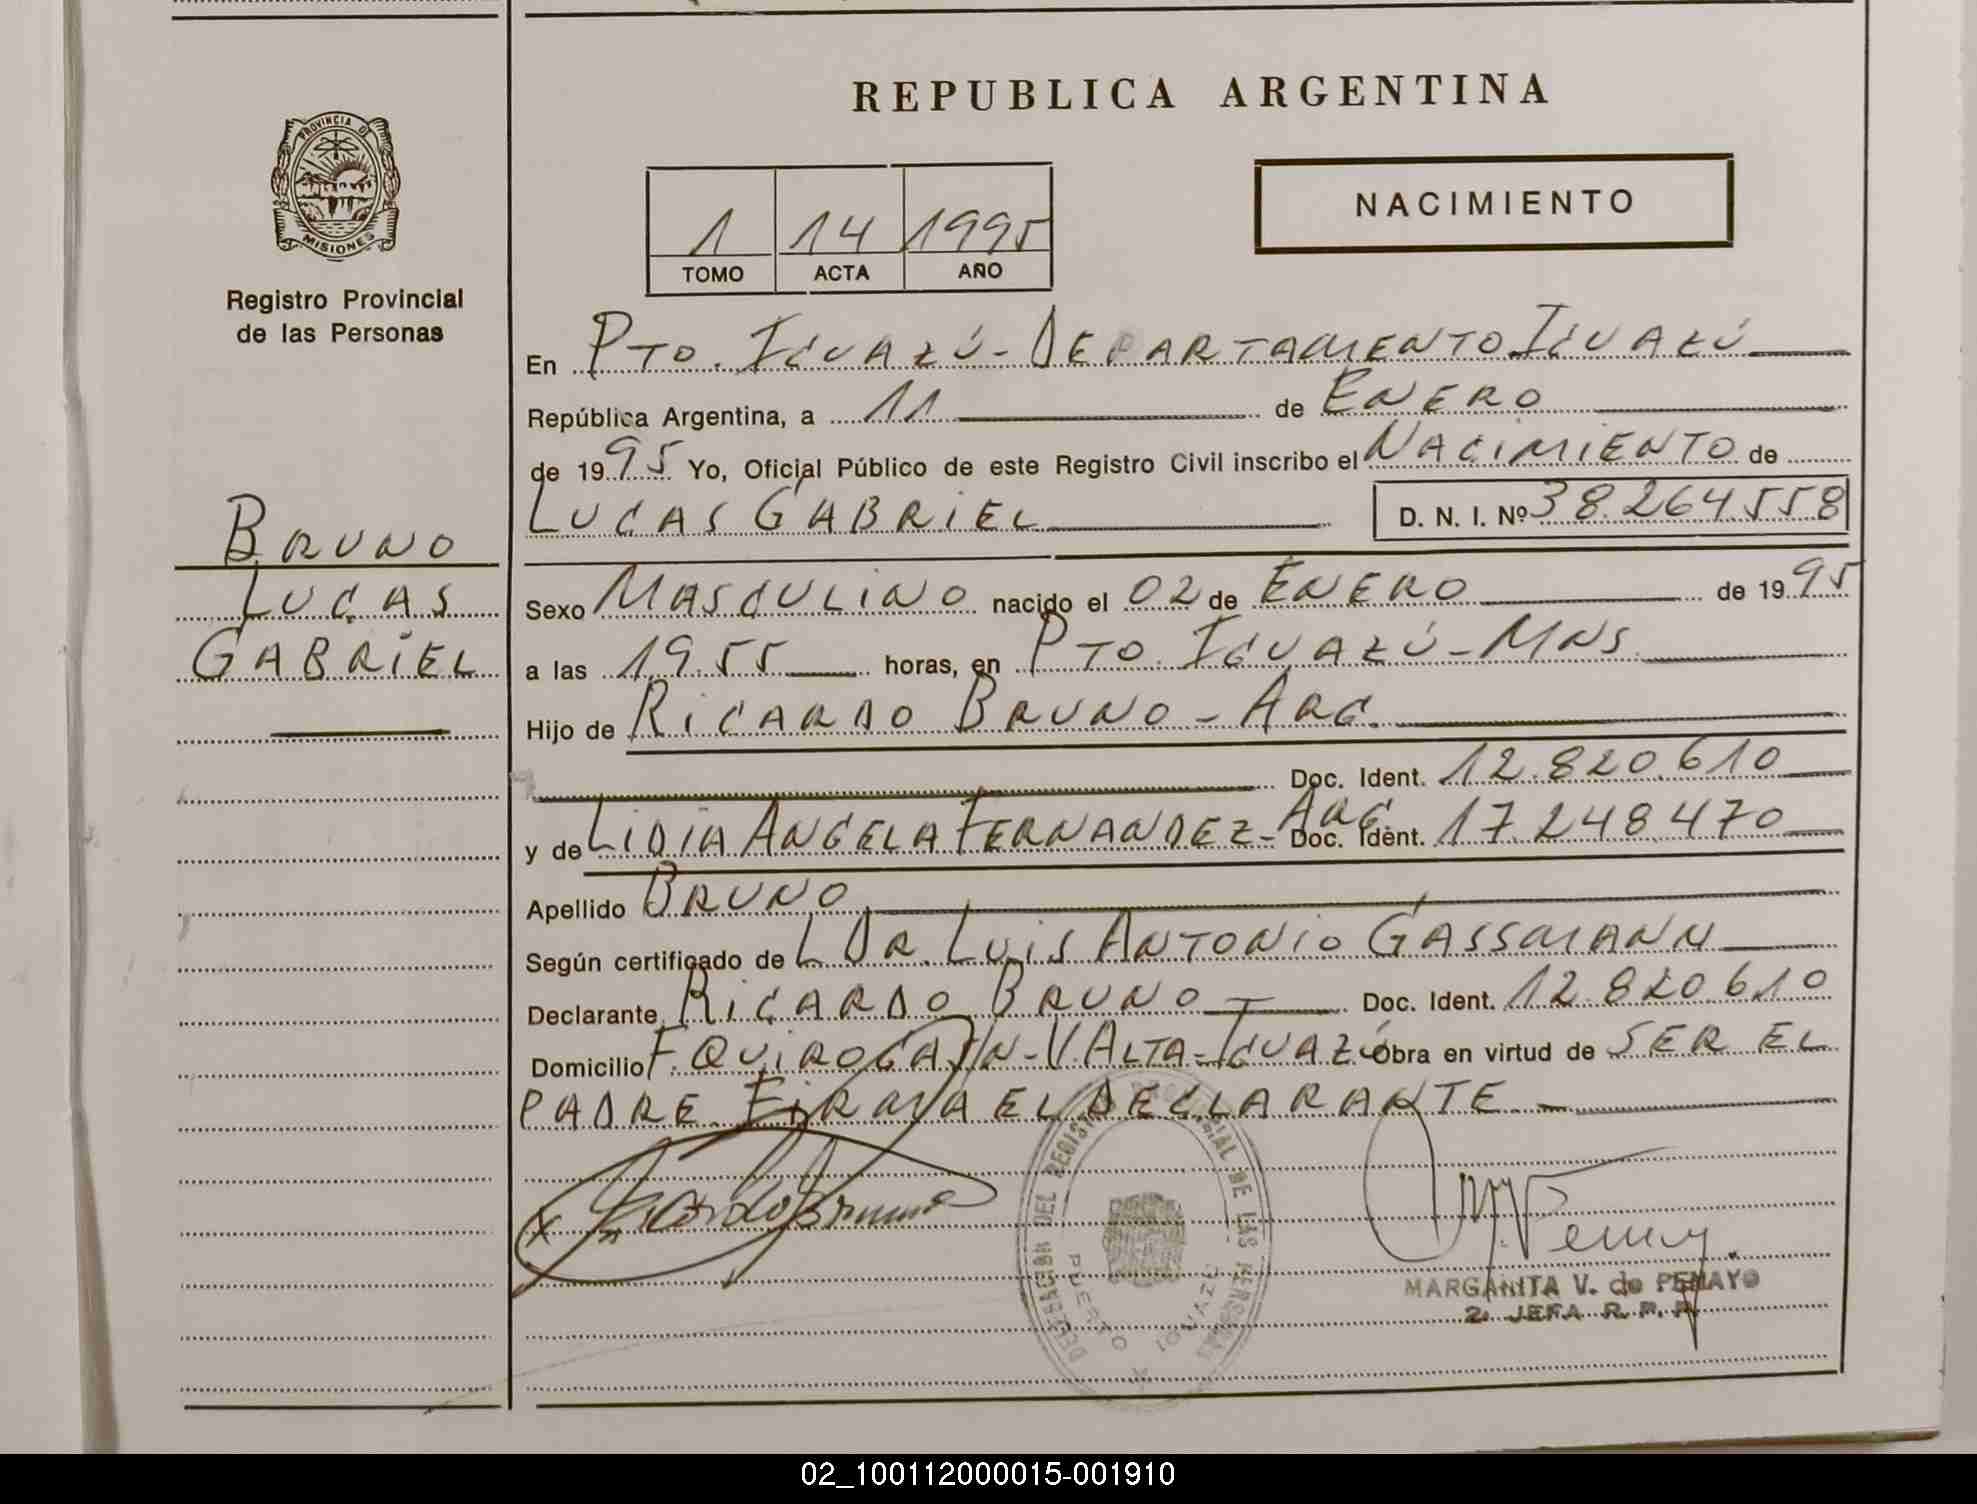 PROVINCIA DE
MISIONES
Registro Provincial
de las Personas
BRUNO
LUCAS
GABRIEL
REPUBLICA ARGENTINA
1 14 1995
TOMO ACTA AÑO
NACIMIENTO
En PTO. IGUAZÚ - DEPARTAMENTO IGUAZÚ
República Argentina, a 11 de ENERO
de 1995 Yo, Oficial Público de este Registro Civil inscribo el NACIMIENTO de
LUCAS GABRIEL D. N. I. Nº 38.264.558
Sexo MASCULINO nacido el 02 de ENERO de 1995
a las 19.55 horas, en PTO. IGUAZÚ - MNS.
Hijo de RICARDO BRUNO - ARG.
Doc. Ident. 12.820.610
y de LIDIA ANGELA FERNANDEZ - ARG. Doc. Ident. 17.248.470
Apellido BRUNO
Según certificado de L DR. LUIS ANTONIO GASSMANN
Declarante RICARDO BRUNO Doc. Ident. 12.820.610
Domicilio F. QUIROGA S/N - V. ALTA - IGUAZÚ Obra en virtud de SER EL
PADRE. FIRMA EL DECLARANTE.
x Ricardo Bruno
DELEGACION DEL REGISTRO PROVINCIAL DE LAS PERSONAS
PUERTO IGUAZU
MARGARITA V. de PENAYO
2ª JEFA R. P. P.
02_100112000015-001910